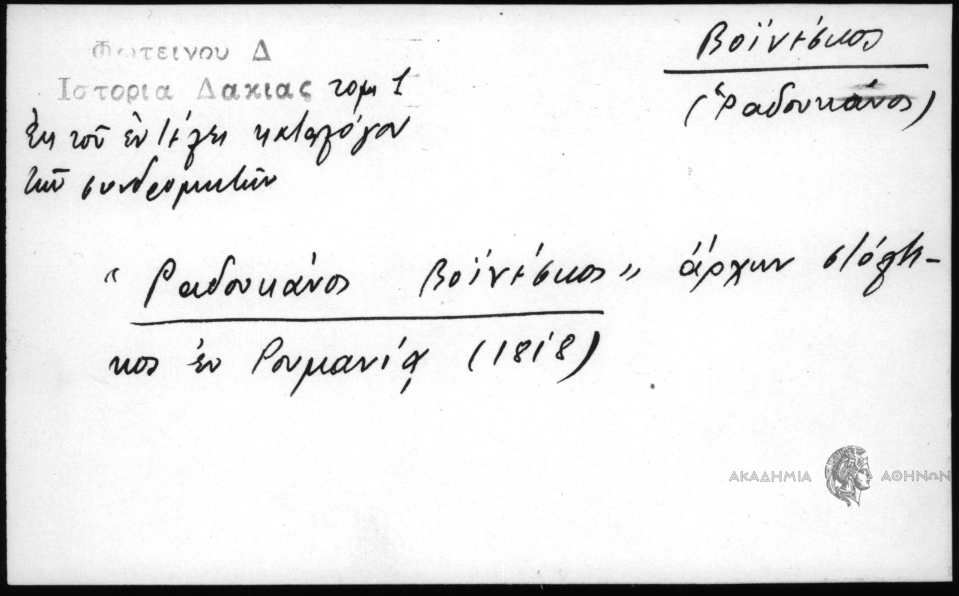 Φωτεινου Δ
Ιστορια Δακιας τομ 1
Ἐκ τοῦ ἐν τέλει καταλόγου
τῶν συνδρομητῶν
Βοϊνέσκος
(Ῥαδουκάνος)
“Ραδουκάνος Βοϊνέσκος” ἄρχων στόλνι-
κος ἐν Ρουμανίᾳ (1818)
ΑΚΑΔΗΜΙΑ ΑΘΗΝΩΝ